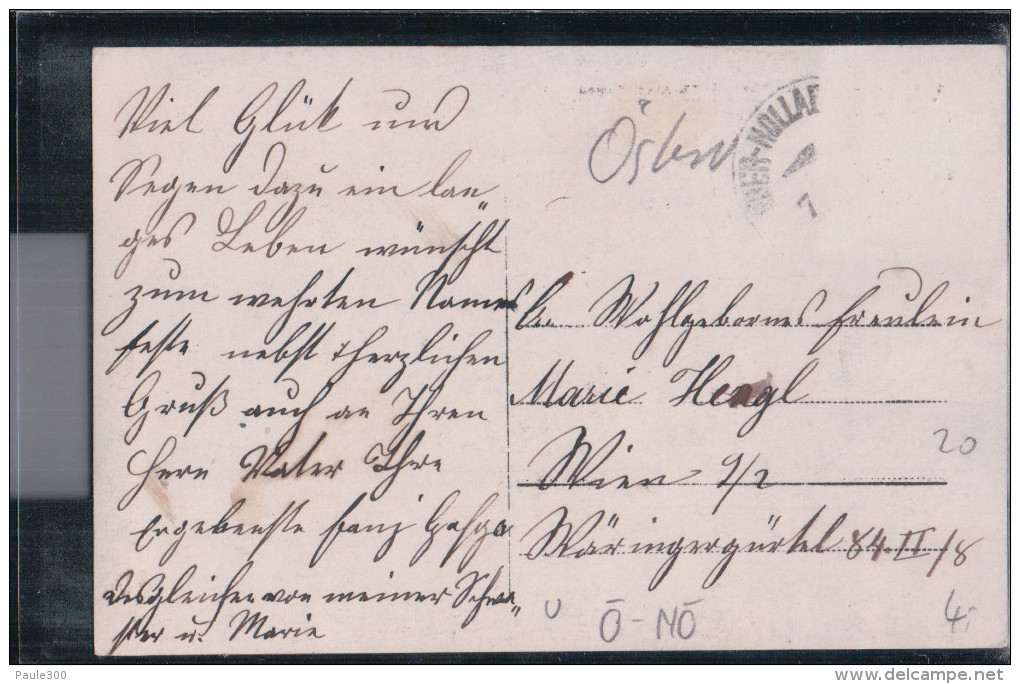 Viel Glük und
Segen dazu ein lan„
ges Leben wünscht
zum wehrten Namens
feste nebst herzlichen
Gruß auch an Ihren
Herrn Vater Ihre
Ergebenste
Desgleichen von meiner Schwe„
ster u. Marie
BER-HOLLAB
7
Wohlgebornes Freulein
Marie Hengl
Wien 9/2
Wäringergürtel 84. II/8
20
4.-
U
Ö-NÖ
Paule300
www.delcampe.net